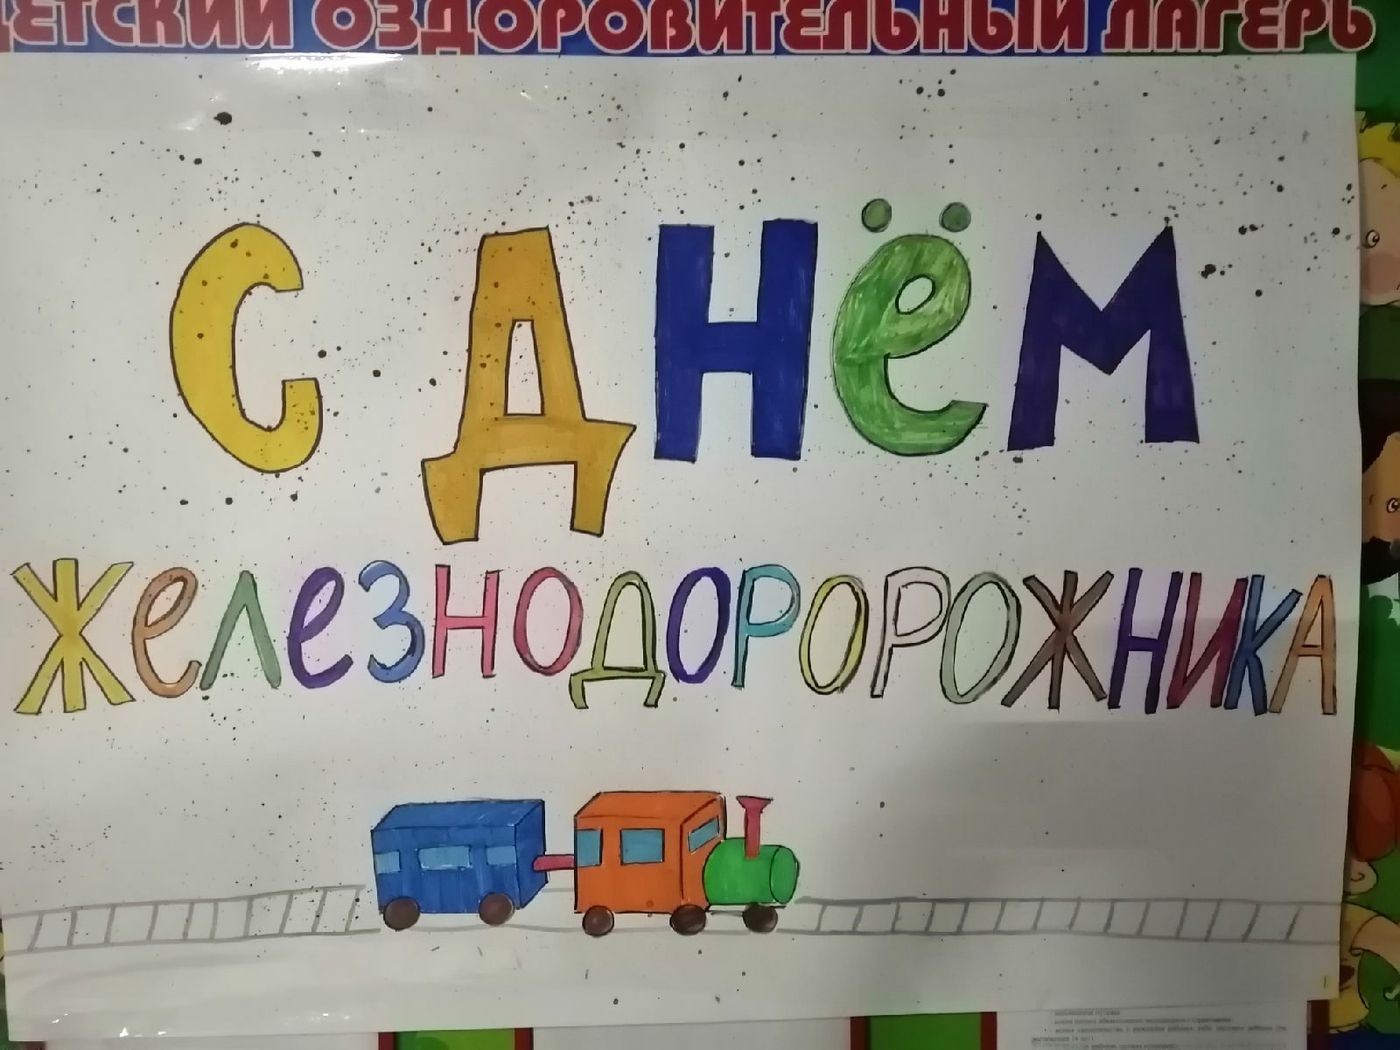 ДЕТСКИЙ ОЗДОРОВИТЕЛЬНЫЙ ЛАГЕРЬ
С ДНЁМ
ЖЕЛЕЗНОДОРОРОЖНИКА